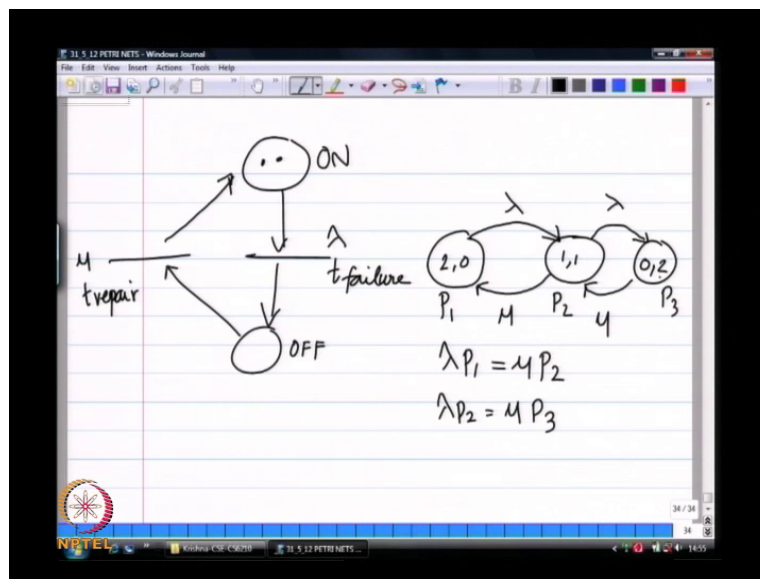 31_5_12 PETRI NETS - Windows Journal
File Edit View Insert Actions Tools Help
B I
ON
λ
t failure
μ
t repair
OFF
λ λ
2,0 1,1 0,2
P1 μ P2 μ P3
λP1 = μP2
λP2 = μP3
34 / 34
34
NPTEL
Krishna-CSE-CS6210
31_5_12 PETRI NETS ...
14:55